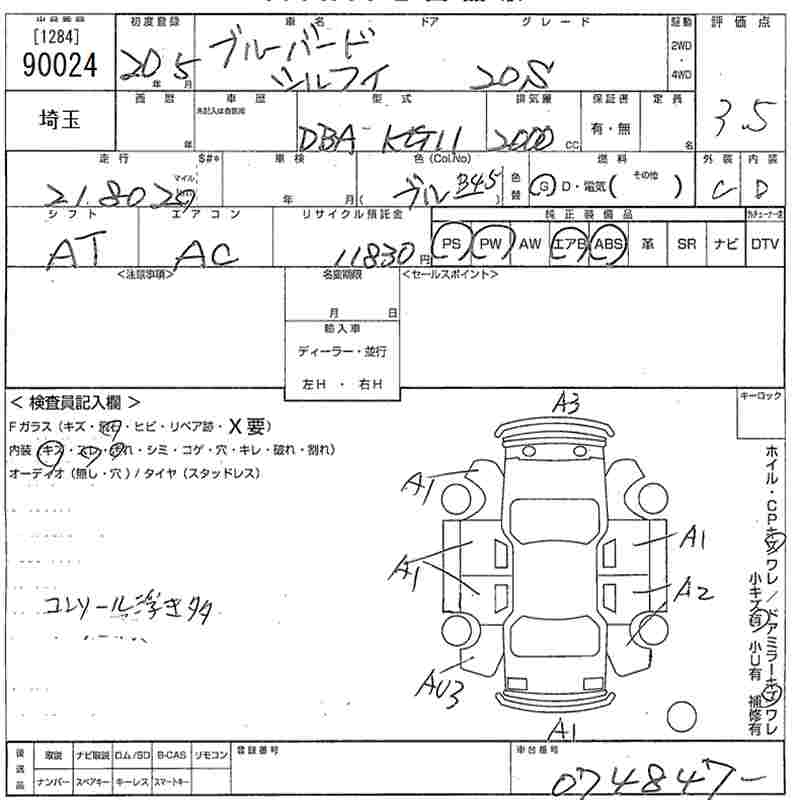 出品番号 初度登録 車名 ドア グレード 駆動 評価点
[1284]
90024 20年 5月 ブルーバード シルフィ 20S 2WD・4WD 3.5
埼玉 西暦 年 車歴 未記入は自家用 型式 DBA-KG11 排気量 2000 CC 保証書 有・無 定員 名
走行 21.802 マイル S#* 車検 年 月 色(Col.No) ブル B45 色替 燃料 G D・電気( その他 ) 外装 C 内装 D
シフト AT エアコン AC リサイクル預託金 11830円 純正装備品 PS PW AW エアB ABS 革 SR ナビ DTV
<注意事項> 名変期限 月 日 <セールスポイント>
輸入車
ディーラー・並行
左H ・ 右H
< 検査員記入欄 > キーロック
Fガラス(キズ・飛石・ヒビ・リペア跡・X要)
内装(キズ・スレ・汚れ・シミ・コゲ・穴・キレ・破れ・割れ)
オーディオ(無し・穴)/タイヤ(スタッドレス)
A3
A1
A1 A1
A2
AU3
A1
コンソール浮き
ホイル・CPキズワレ/ドアミラーキズワレ
小キズ有 小U有 補修有
後送品 取説 ナビ取説 ロム/SD B-CAS リモコン 登録番号 車台番号
ナンバー スペアキー キーレス スマートキー 074847-